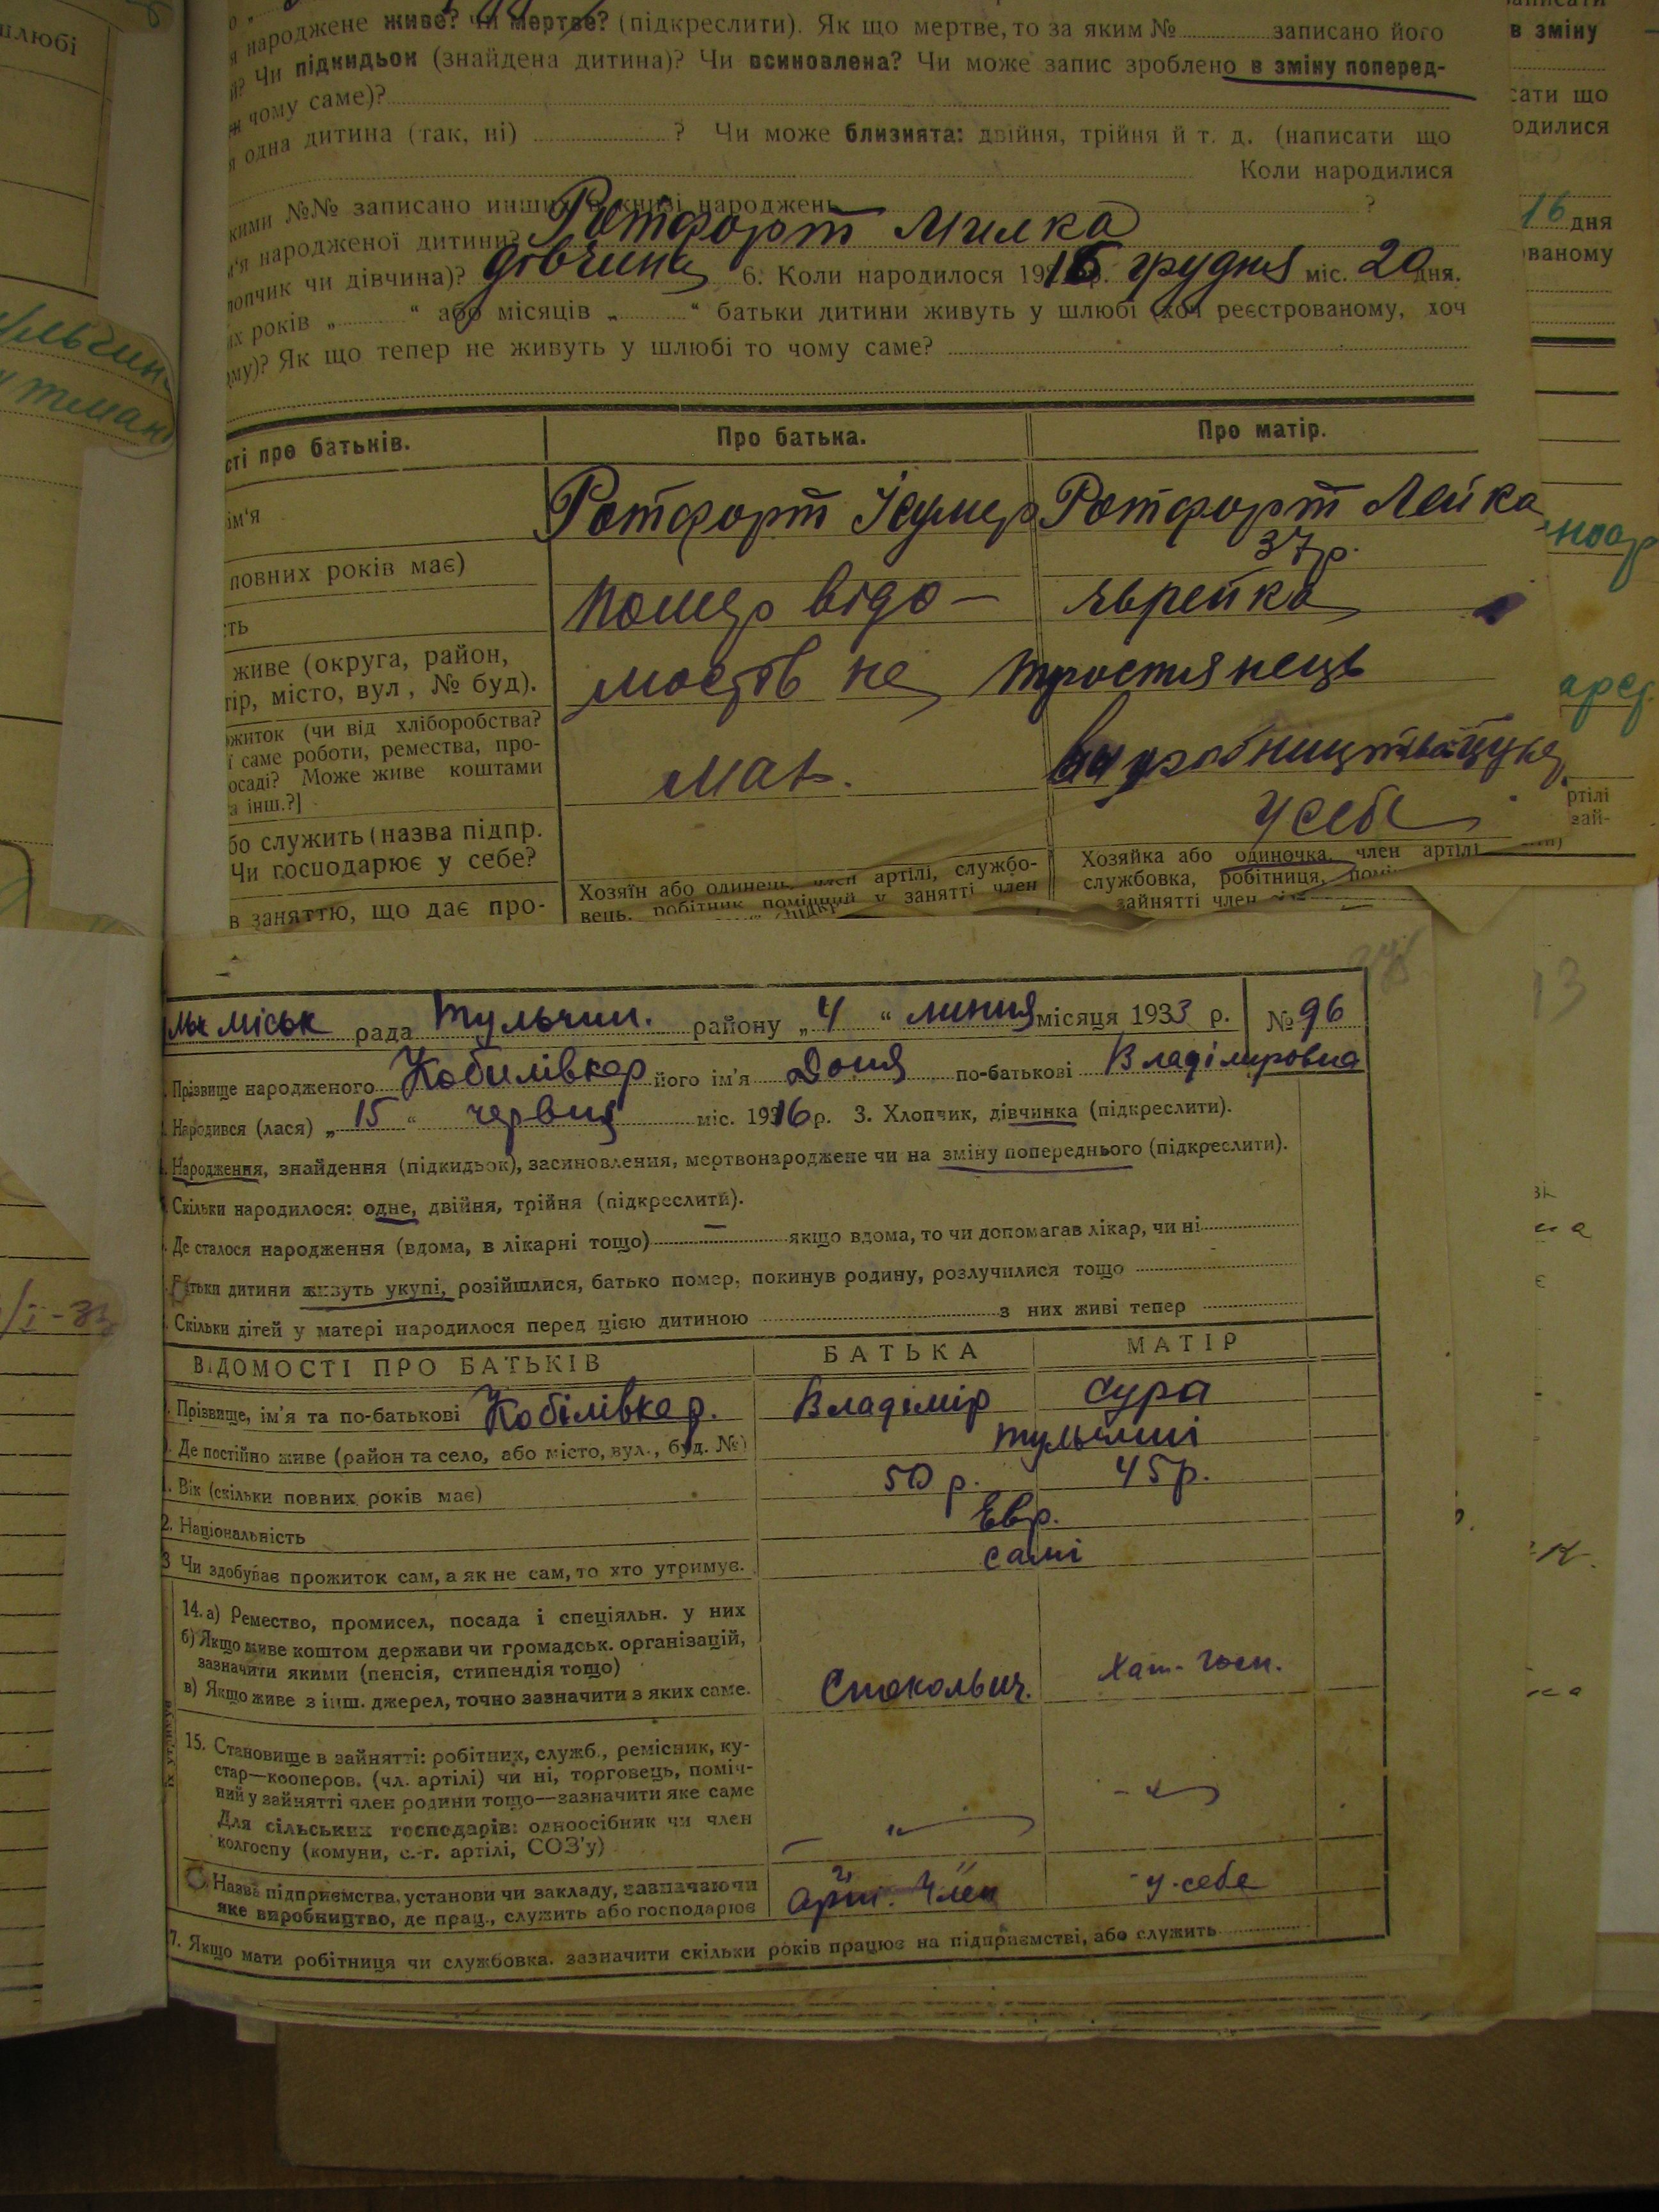 народжене живе? чи мертве? (підкреслити). Як що мертве, то за яким № записано його
Чи підкидьок (знайдена дитина)? Чи всиновлена? Чи може запис зроблено в зміну поперед-
чому саме)?
одна дитина (так, ні) ? Чи може близнята: двійня, трійня й т. д. (написати що
Коли народилися
кими №№ записано инших в книзі народжень ?
м'я народженої дитини? Ротфорт Милка
лопчик чи дівчина)? дівчина 6. Коли народилося 1916 р. грудня міс. 20 дня.
их років „ “ або місяців „ “ батьки дитини живуть у шлюбі (хоч реєстрованому, хоч
му)? Як що тепер не живуть у шлюбі то чому саме?
сті про батьків. Про батька. Про матір.
ім'я Ротфорт Ротфорт Лейка
повних років має) 37 р.
сть помер відо- яврейка
живе (округа, район,
тір, місто, вул, № буд). мостів не Тростянець
житок (чи від хліборобства?
ї саме роботи, ремества, про-
осаді? Може живе коштами
а інш.?] має.
у себе
бо служить (назва підпр.
Чи господарює у себе?
в заняттю, що дає про-
Хозяїн або одинець, член артілі, службо-
вець, робітник помічний у занятті член
Хозяйка або одиночка, член артілі
службовка, робітниця,
зайнятті член
міськ рада Тульчин. району „4“ липня місяця 1933 р. № 96
Прізвище народженого Кобилівкер його ім'я Доня по-батькові Владіміровна
Народився (лася) „15“ червця міс. 1916 р. 3. Хлопчик, дівчинка (підкреслити).
Народження, знайдення (підкидьок), засиновлення, мертвонароджене чи на зміну попереднього (підкреслити).
Скільки народилося: одне, двійня, трійня (підкреслити).
Де сталося народження (вдома, в лікарні тощо) — якщо вдома, то чи допомагав лікар, чи ні
Батьки дитини живуть укупі, розійшлися, батько помер, покинув родину, розлучилися тощо
Скільки дітей у матері народилося перед цією дитиною з них живі тепер
ВІДОМОСТІ ПРО БАТЬКІВ БАТЬКА МАТІР
Прізвище, ім'я та по-батькові Кобілівкер. Владімір Сура
Де постійно живе (район та село, або місто, вул., буд. №) Тульчині
Вік (скільки повних років має) 50 р. 45 р.
2. Національність Евр.
3 Чи здобуває прожиток сам, а як не сам, то хто утримує. самі
14. а) Ремество, промисел, посада і спеціяльн. у них
б) Якщо живе коштом держави чи громадськ. організацій,
зазначити якими (пенсія, стипендія тощо)
в) Якщо живе з інш. джерел, точно зазначити з яких саме. Хат. госп.
15. Становище в зайнятті: робітник, служб., ремісник, ку-
стар—кооперов. (чл. артілі) чи ні, торговець, поміч-
ний у зайнятті член родини тощо—зазначити яке саме
Для сільських господарів: одноосібник чи член
колгоспу (комуни, с.-г. артілі, СОЗ'у)
Назва підприємства, установи чи закладу, зазначаючи
яке виробництво, де прац., служить або господарює Арт. Член у себе
7. Якщо мати робітниця чи службовка. зазначити скільки років працює на підприємстві, або служить